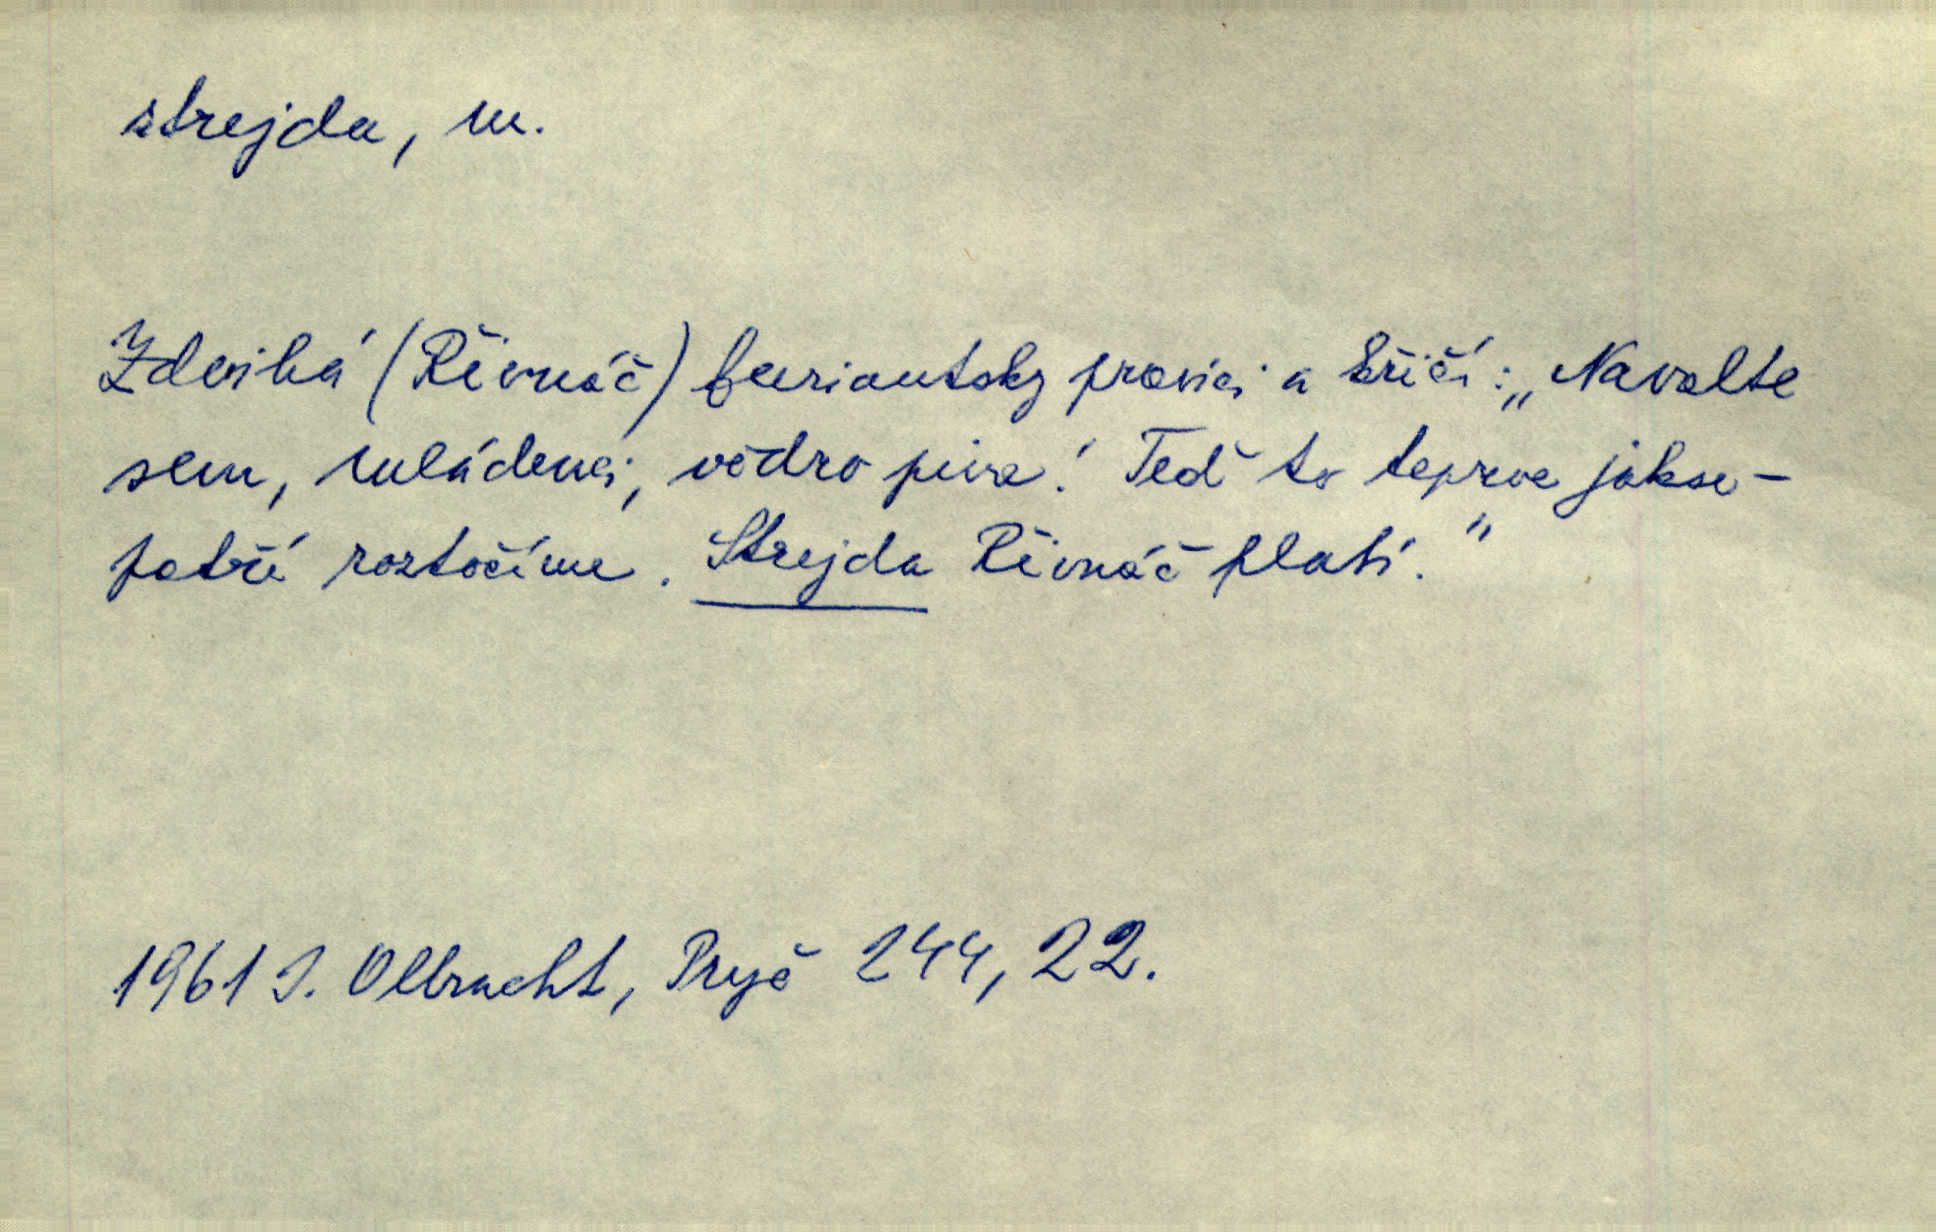 strejda, m.
Zdvihá (Řivnáč) furiantsky pravici a křičí: „Navalte
sem, mládenci, vědro piva! Teď to teprve jakse-
patří roztočíme. Strejda Řivnáč platí."
1961 I. Olbracht, Pryč 244, 22.